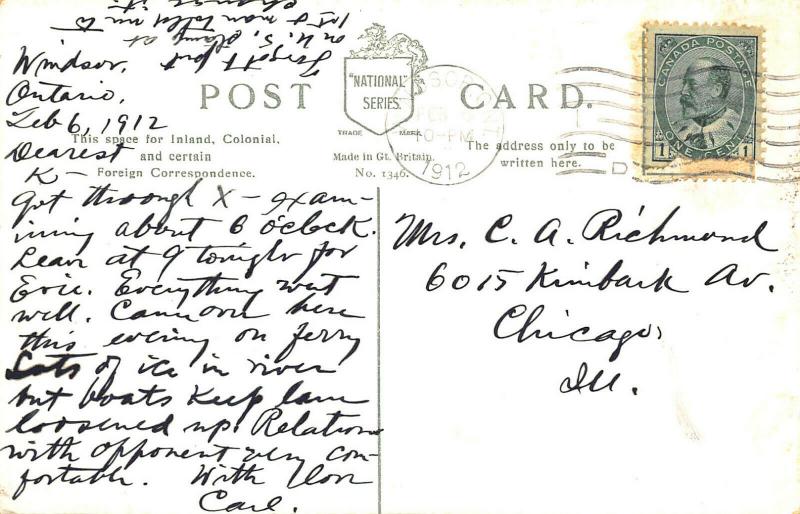 Windsor,
Ontario,
Feb 6, 1912
Dearest
K—
Got through X- exam-
ining about 6 o'clock.
Leave at 9 tonight for
Erie. Everything went
well. Came over here
this evening on ferry
Lots of ice in river
but boats keep lane
loosened up. Relations
with opponent very com-
fortable. With love
Carl.
on U.S. stamp
1st &
POST CARD.
"NATIONAL"
SERIES.
TRADE MARK
This space for Inland, Colonial,
and certain
Foreign Correspondence.
Made in Gt. Britain.
No. 1346.
The address only to be
written here.
FEB 6
10-PM
1912
D
CANADA POSTAGE
1 ONE CENT 1
Mrs. C. A. Richmond
6015 Kimbark Av.
Chicago,
Ill.